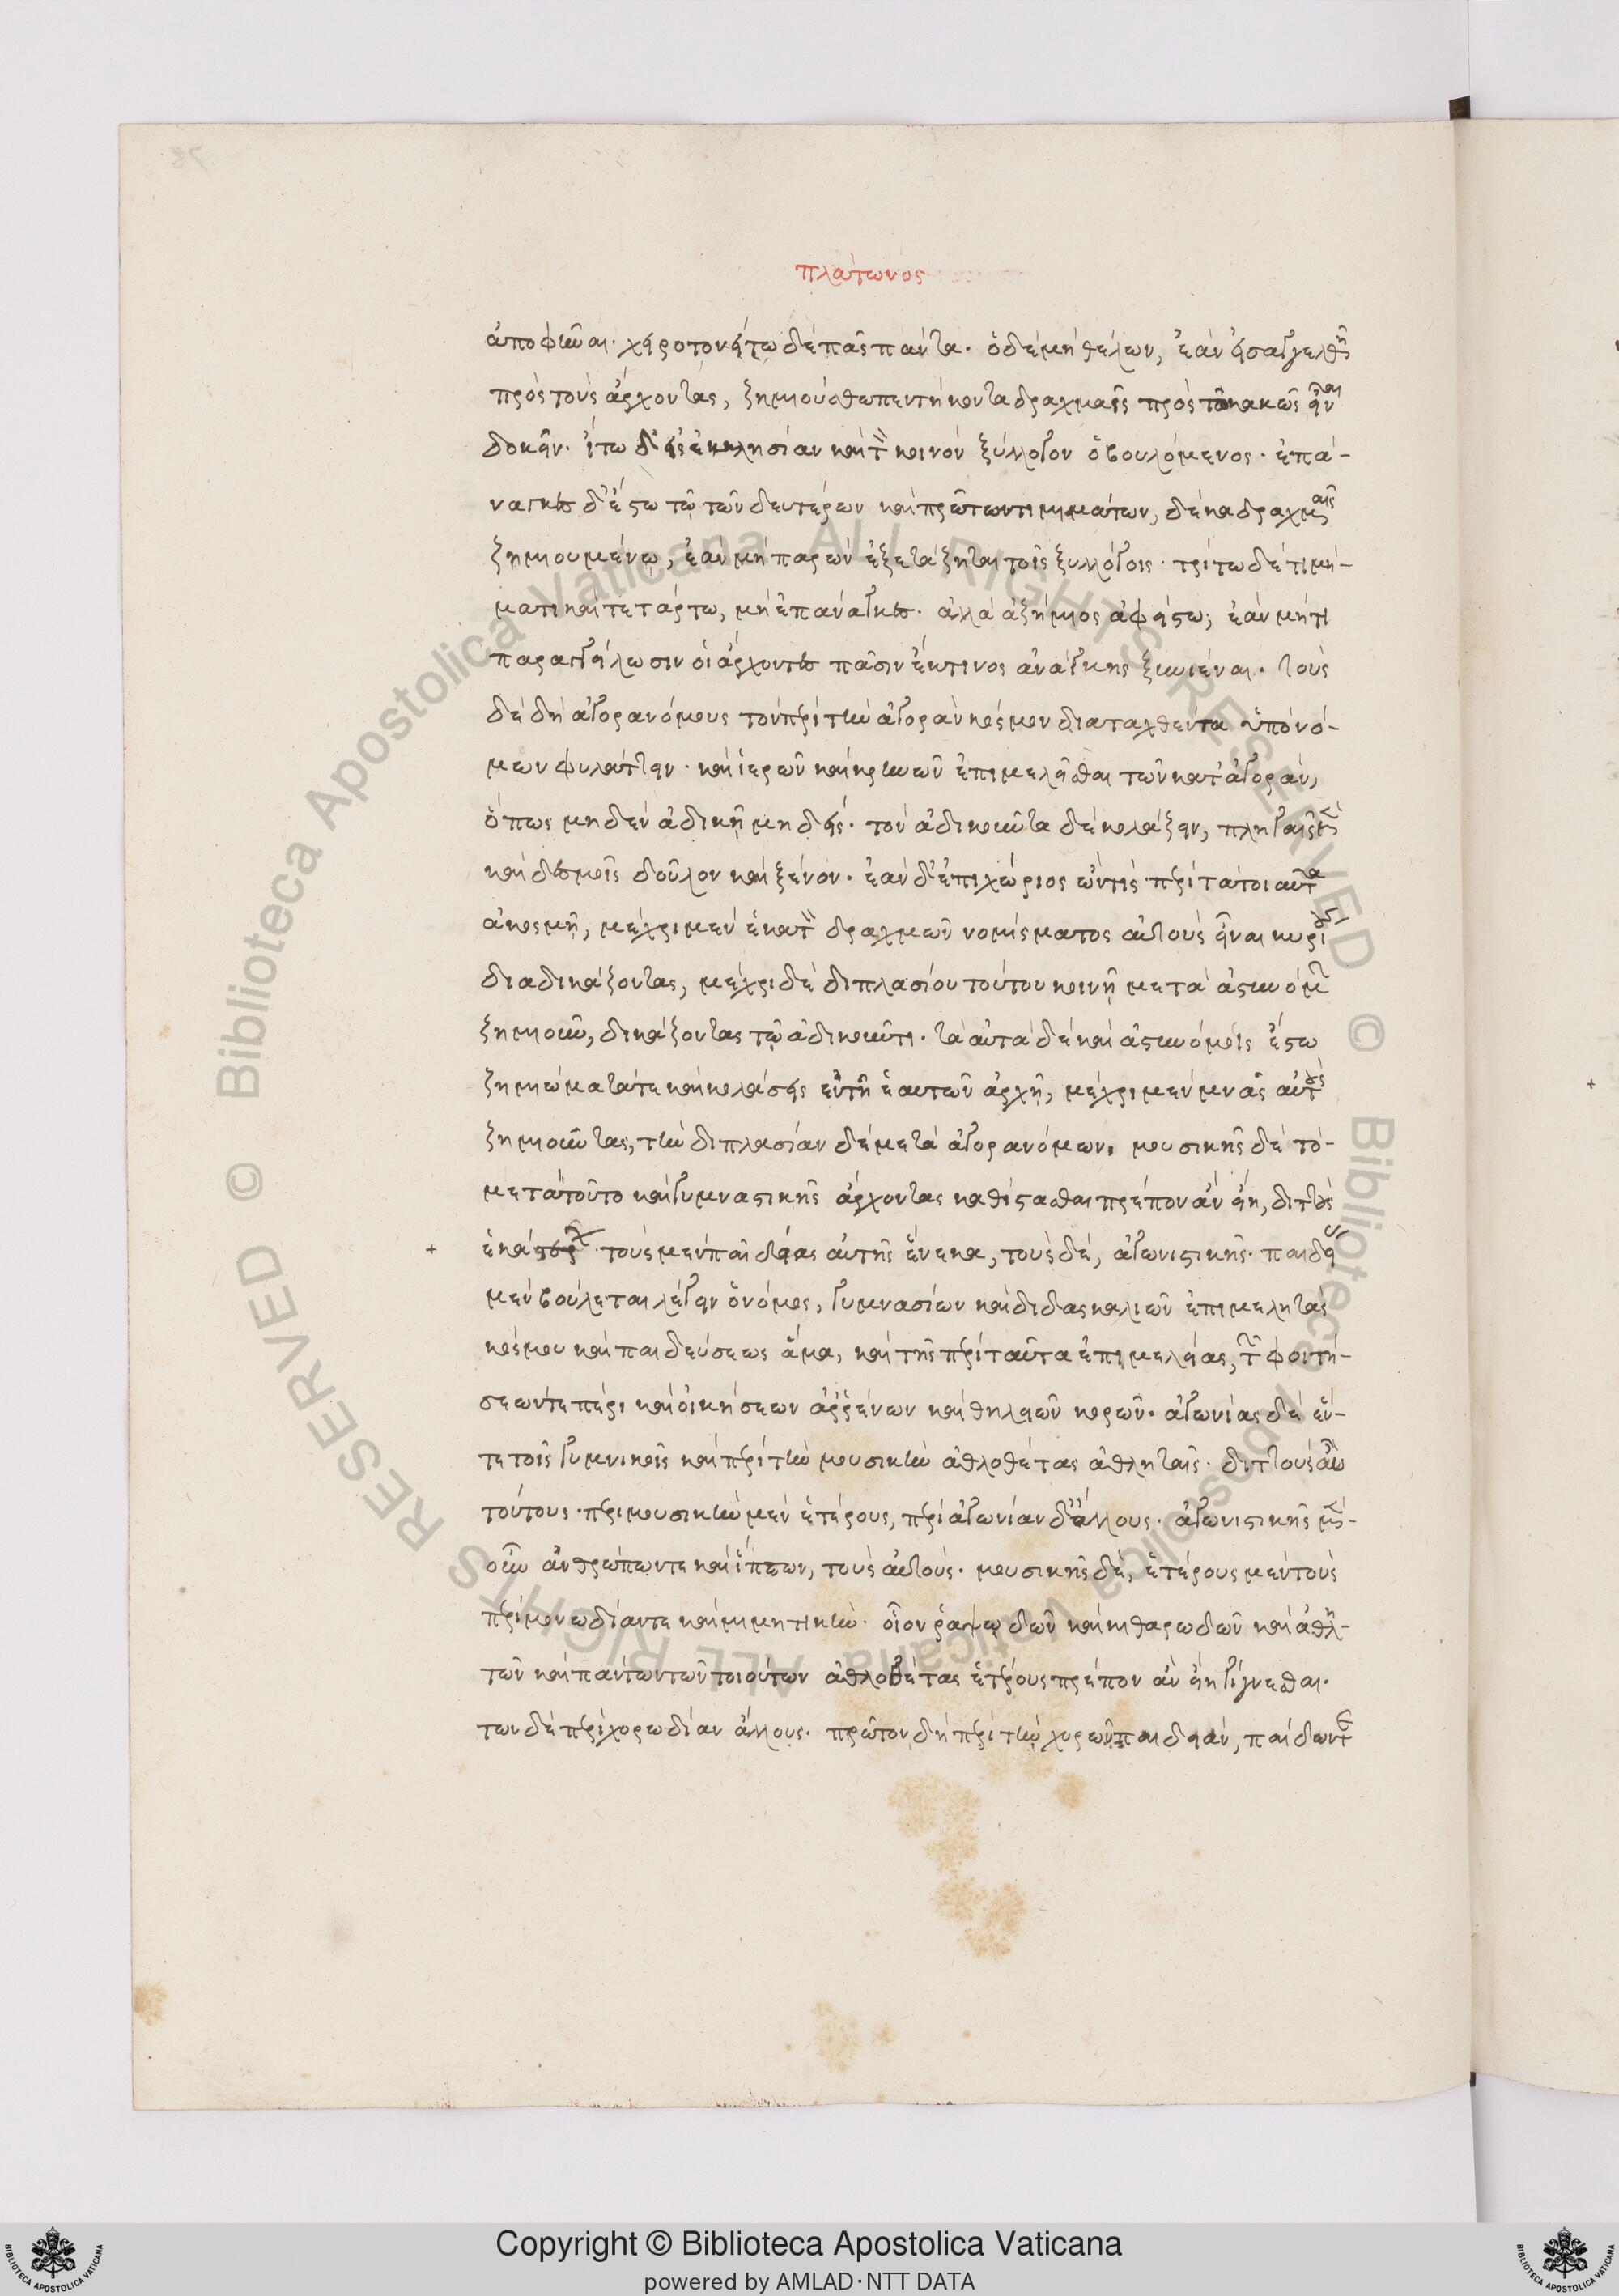 πλάτωνος
ἀποφῆναι· χειροτονείτω δὲ πᾶς πάντα· ὁ δὲ μὴ θέλων, ἐὰν εἰσαγγελθῆ
πρὸς τοὺς ἄρχοντας, ζημιούσθω πεντήκοντα δραχμαῖς πρὸς τῶ κακῶς εἶναι
δοκεῖν. ἴτω δ' εἰς ἐκκλησίαν καὶ τὸν κοινὸν ξύλλογον ὁ βουλόμενος· ἐπά-
ναγκες δ' ἔστω τῶ τῶν δευτέρων καὶ πρώτων τιμημάτων, δέκα δραχμαῖς
ζημιουμένω, ἐὰν μὴ παρὼν ἐξετάζηται τοῖς ξυλλόγοις· τρίτω δὲ τιμή-
ματι καὶ τετάρτω, μὴ ἐπάναγκες· ἀλλὰ ἀζήμιος ἀφείσθω; ἐὰν μή τι
παραγγείλωσιν οἱ ἄρχοντες πᾶσιν ἔκ τινος ἀνάγκης ξυνιέναι. τοὺς
δὲ δὴ ἀγορανόμους τὸν περὶ τὴν ἀγορὰν κόσμον διαταχθέντα ὑπὸ νό-
μων φυλάττειν· καὶ ἱερῶν καὶ κρηνῶν ἐπιμελεῖσθαι τῶν κατ' ἀγοράν,
ὅπως μηδὲν ἀδικῆ μηδείς· τὸν ἀδικοῦντα δὲ κολάζειν, πληγαῖς μὲν
καὶ δεσμοῖς δοῦλον καὶ ξένον. ἐὰν δ' ἐπιχώριος ὤν τις περὶ τὰ τοιαῦτα
ἀκοσμῆ, μέχρι μὲν ἑκατὸν δραχμῶν νομίσματος αὐτοὺς εἶναι κυρίους
διαδικάζοντας, μέχρι δὲ διπλασίου τούτου κοινῆ μετὰ ἀστυνόμων
ζημιοῦν, δικάζοντας τῶ ἀδικοῦντι. τὰ αὐτὰ δὲ καὶ ἀστυνόμοις ἔστω
ζημιώματά τε καὶ κολάσεις ἐν τῆ ἑαυτῶν ἀρχῆ, μέχρι μὲν μνᾶς αὐτοὺς
ζημιοῦντας, τὴν διπλασίαν δὲ μετὰ ἀγορανόμων. μουσικῆς δὲ τὸ-
μετὰ τοῦτο καὶ γυμναστικῆς ἄρχοντας καθίστασθαι πρέπον ἂν εἴη, διττοὺς
ἑκάτερ· τοὺς μὲν παιδείας αὐτῆς ἕνεκα, τοὺς δὲ, ἀγωνιστικῆς. παιδείας
μὲν βούλεται λέγειν ὁ νόμος, γυμνασίων καὶ διδασκαλιῶν ἐπιμελητὰς
κόσμου καὶ παιδεύσεως ἅμα, καὶ τῆς περὶ ταῦτα ἐπιμελείας, τῶν φοιτή-
σεών τε πέρι καὶ οἰκήσεων ἀῤῥένων καὶ θηλειῶν κορῶν. ἀγωνίας δὲ ἔν-
τε τοῖς γυμνικοῖς καὶ περὶ τὴν μουσικὴν ἀθλοθέτας ἀθληταῖς· διττοὺς αὖ
τούτους· περὶ μουσικὴν μὲν ἑτέρους, περὶ ἀγωνίαν δ' ἄλλους. ἀγωνιστικῆς μὲν-
οὖν ἀνθρώπων τε καὶ ἵππων, τοὺς αὐτούς. μουσικῆς δὲ, ἑτέρους μὲν τοὺς
περὶ μονωδίαν τε καὶ μιμητικήν. οἷον ῥαψωδῶν καὶ κιθαρωδῶν καὶ αὐλη-
τῶν καὶ πάντων τῶν τοιούτων ἀθλοθέτας ἑτέρους πρέπον ἂν εἴη γίγνεσθαι.
των δὲ περὶ χορωδίαν ἄλλους. πρῶτον δὴ περὶ τὴν χορῶν παιδειὰν, παίδων τε